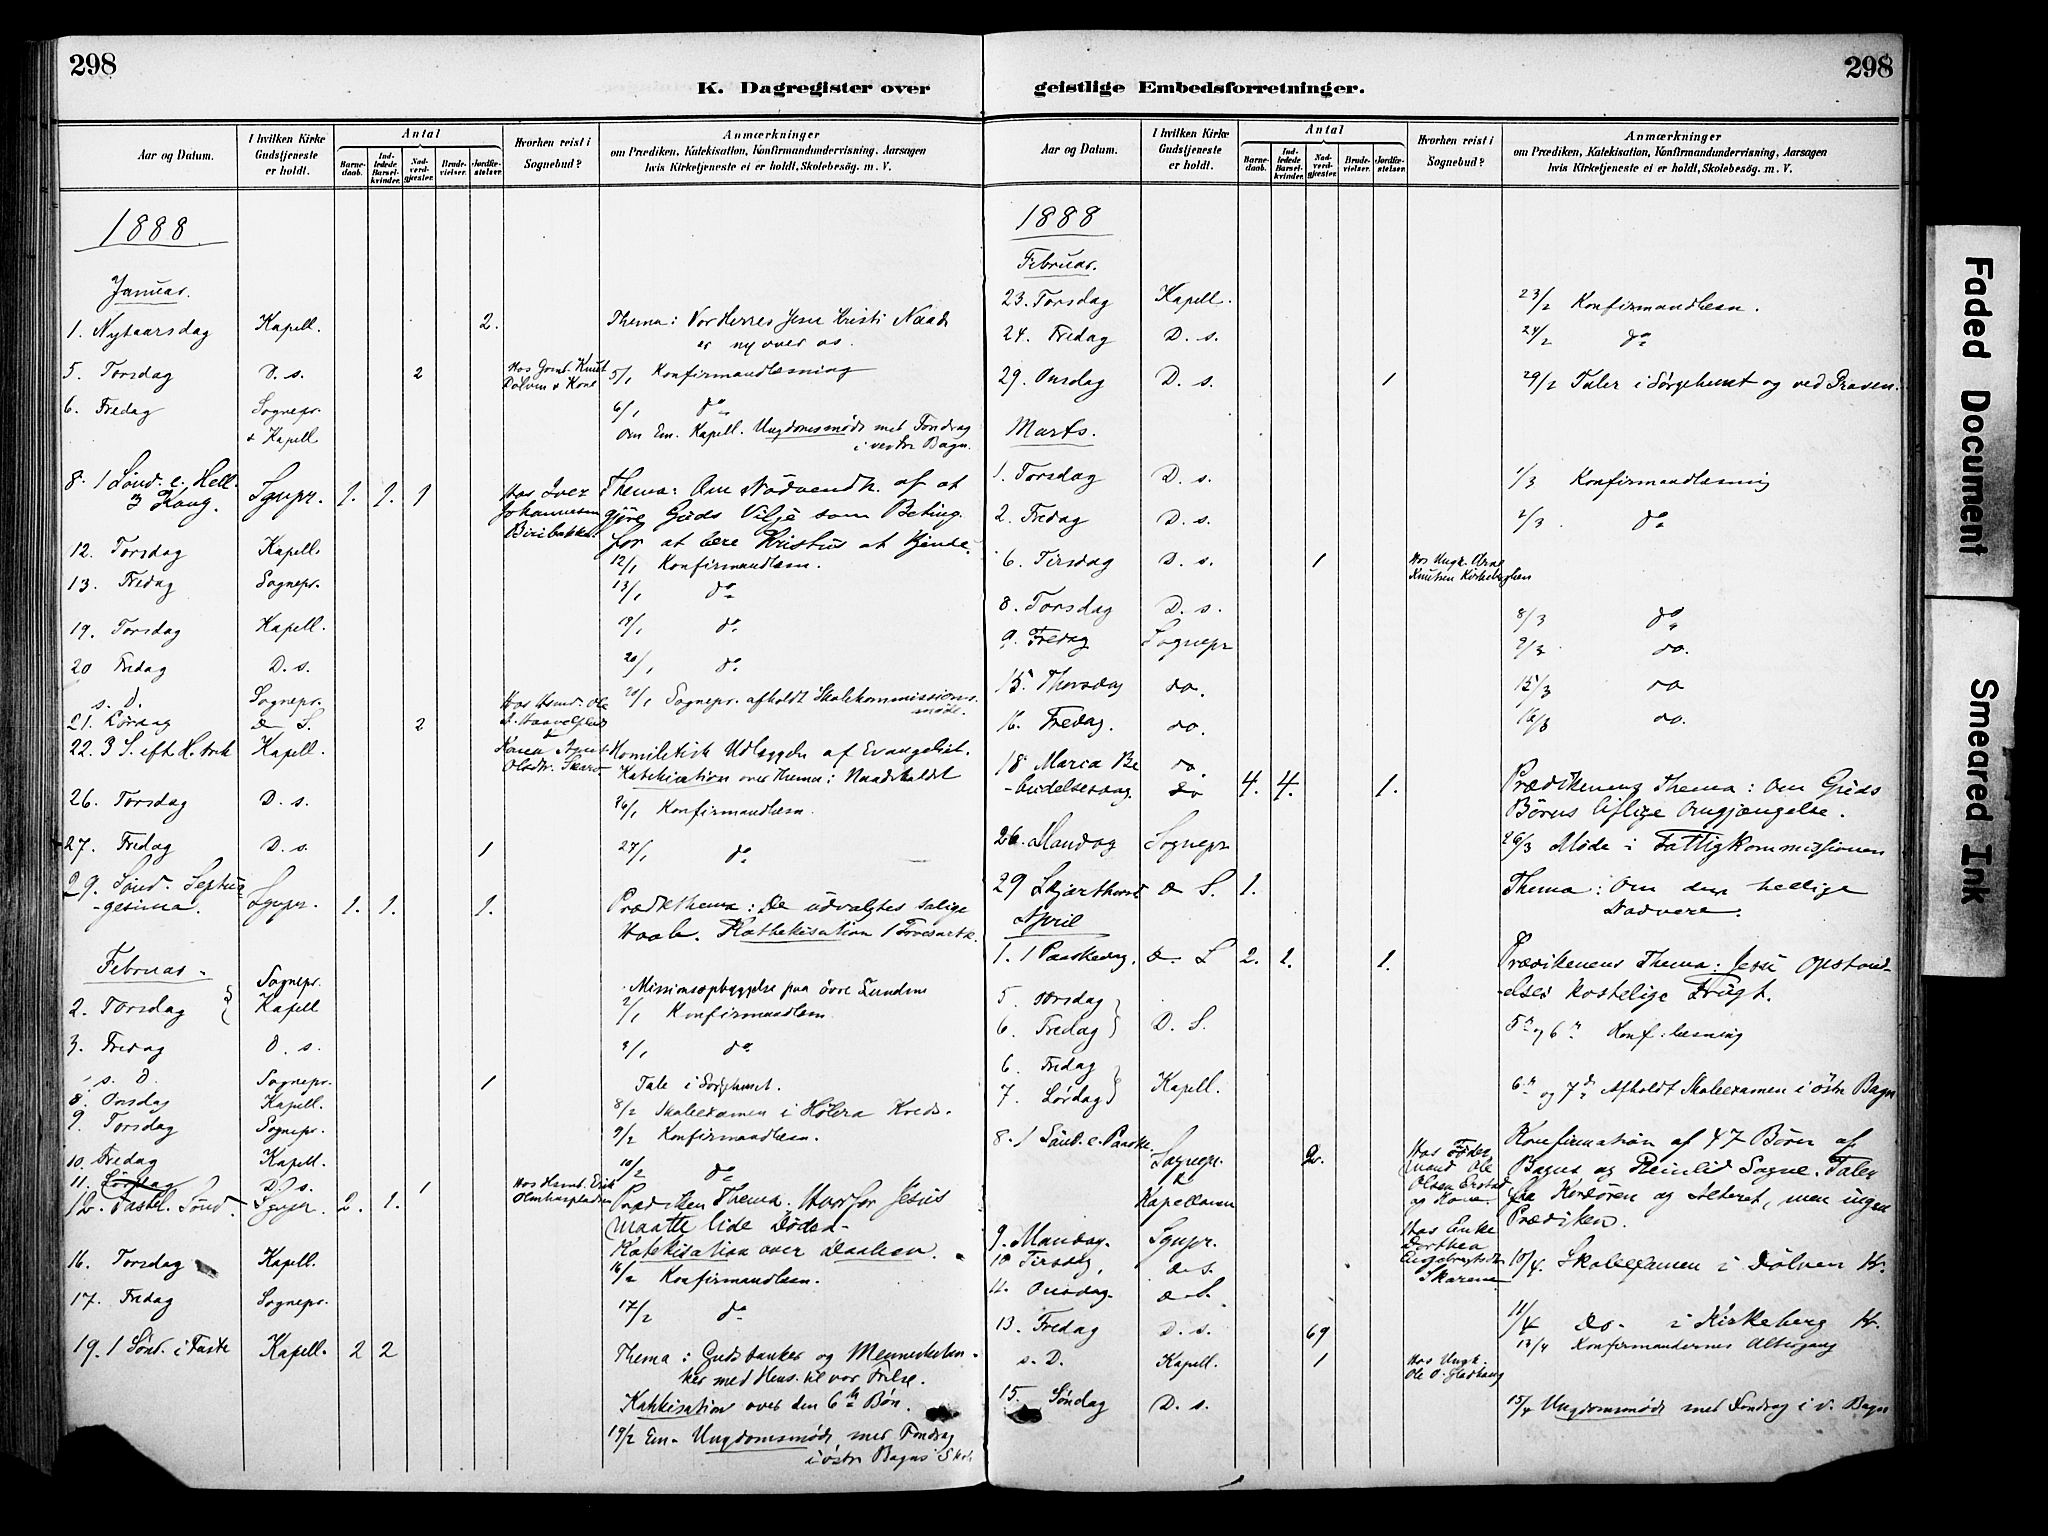 298
K. Dagregister over
Aar og Datum.
I hvilken Kirke Gudstjeneste er holdt.
Antal
Barne-daab.
Ind-ledede Barsel-kvinder.
Nad-verd-gjester.
Brude-vielser.
Jordfæ-stelser.
Hvorhen reist i Sognebud?
Anmærkninger
om Prædiken, Katekisation, Konfirmandundervisning, Aarsagen
hvis Kirketjeneste ei er holdt, Skolebesög. m. V.
1888
Januar.
1. Nytaarsdag Kapell. 2. Thema: Vor Herres Jesu Kristi Naade
er ny over os.
5. Torsdag D. s. 2 5/1 Konfirmandlæsning
6. Fredag Sognepr. 6/1 do
& Kapell Om Em. Kapell. Ungdomsmøde med Foredrag
i vestre Bagn.
8. 1 Sønd. e. Hell. 3 Kong. Sgnpr. 1. 1. 1 Hos Iver Johannesen Thema: Om Nödvendh. af at
gjöre Guds Vilje som Beting.
for at lære Kristus at kjende.
12. Torsdag Kapell. 12/1 Konfirmandlæsn.
13. Fredag Sognepr. 13/1 do
19. Torsdag Kapell. 19/1 do
20 Fredag D. s. 20/1 do
s. D. Sognepr. 20/1 Sognepr. afholdt Skolekommissions
møde.
21. Lördag d S. 2
22. 3 S. eft. H. trk Kapell. Homiletisk Udlæggelse af Evangeliet.
Katekisation over Thema: Naadstoldet
26. Torsdag D. s. 26/1 Konfirmandlæsn.
27. Fredag D. s. 1 27/1 do
29. Sønd. Septua-
gesima. Sgnpr. 1. 1. 1. Prædkthema: De udvalgtes salige
Haab. Kathekisation 1 Trosartk.
Februar.
Sognepr. Missionsopbyggelse paa övre Lundene
2. Torsdag Kapell 2/1 Konfirmandlæsn.
3. Fredag D. s. 3/1 do
s. D. Sognepr. 1 Tale i Sørgehuset.
8. Onsdag Kapell. 8/2 Skoleexamen i Hølera Kreds.
9. Torsdag Sognepr. 9/2 Konfirmandlæsn.
10. Fredag Kapell. 10/2 do
11. Lördag D. s. 1
12. Fastel. Sønd. Sgnpr. 2. 1. Prædiken Thema: Hvorfor Jesus
maatte lide Döden
Katekisation over Daaben.
16. Torsdag Kapell. 16/2 Konfirmandlæsn.
17. Fredag Sognepr. 17/2 do
19. 1 Sønd. i Faste Kapell. 2 2 Thema: Guds tanker og Mennesketan-
ker med Hens. til vor Frelse.
Katekisation over den 6te Bøn.
19/2 Em. Ungdomsmøde med Foredrag
i østre Bagns Skole
298
geistlige Embedsforretninger.
Aar og Datum.
I hvilken Kirke Gudstjeneste er holdt.
Antal
Barne-daab.
Ind-ledede Barsel-kvinder.
Nad-verd-gjester.
Brude-vielser.
Jordfæ-stelser.
Hvorhen reist i Sognebud?
Anmærkninger
om Prædiken, Katekisation, Konfirmandundervisning, Aarsagen
hvis Kirketjeneste ei er holdt, Skolebesög. m. V.
1888
Februar.
23. Torsdag Kapell. 23/2 Konfirmandlæsn.
24. Fredag D. s. 24/2 do
29. Onsdag D. s. 1 29/2 Taler i Sørgehuset og ved Graven.
Marts.
1. Torsdag D. s. 1/3 Konfirmandlæsning
2. Fredag D. s. 2/3 do
6. Tirsdag D. s. 1
8. Torsdag D. s. 8/3 do
9. Fredag Sognepr 9/3 do.
15. Thorsdag do. 15/3 do
16. Fredag. do. 16/3 do.
18 Maria Be do.
-budelsesdag. 4. 4. 1. Prædikenens Thema: Om Guds
Børns liflige Omgjængelse.
26. Mandag Sognepr 26/3 Møde i Fattigkommissionen
29 Skjærthorsd d S. 1. Thema: Om den hellige
Nadvere.
April
1. 1 Paaskedag. d S 2. 2. 1. Prædikenens Thema: Jesu Opstand-
elses kostelige Frugt.
5. Torsdag
6. Fredag D. S. 5te og 6te Konf. læsning
6. Fredag
7. Lørdag Kapell. 6te og 7de Afholdt Skoleexamen i östr Bagn
8. 1 Sönd. e. Paaske Sognepr. & Kapellanen 2. Hos Föder mand Ole Olsen og Kone Konfirmation af 47 Børn af
Bagns og Reinlid Sogne. Taler
fra Kordören og Alteret, men ingen
Prædiken.
9. Mandag. Sgnpr. Hos Enke Dorthea Engebregtsdr Skarene
10 Tirsdag. d S. 10/4. Skoleexamen i Dølven Kr.
11. Onsdag. d S. 11/4 do. i Kirkeberg Kr.
13. Fredag D. s. 69 13/4 Konfirmandernes Altergang
s. D. Kapell. 1 Hos Ungk.
15. Søndag D. s. 15/4 Ungdomsmøde med Foredrag i v. Bagn
Faded Document
Smeared Ink